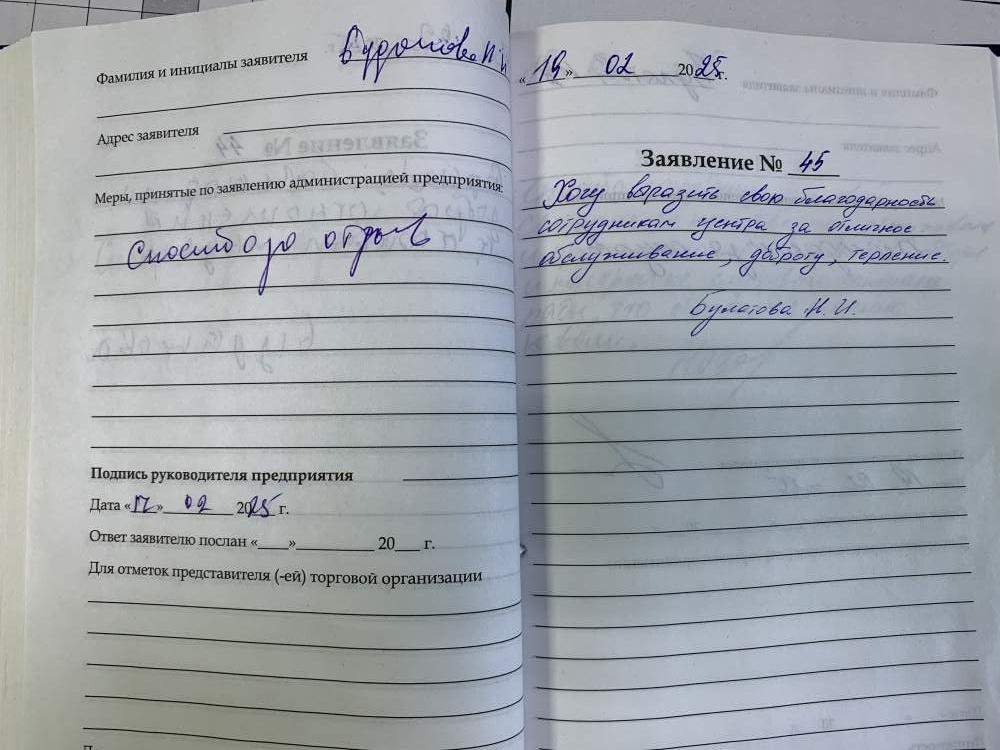 Фамилия и инициалы заявителя
Адрес заявителя
Меры, принятые по заявлению администрацией предприятия:
Спасибо за отзыв
Подпись руководителя предприятия
Дата «17» 02 2025 г.
Ответ заявителю послан «___»__________ 20___ г.
Для отметок представителя (-ей) торговой организации
«19» 02 2025г.
Заявление № 45
Хочу выразить свою благодарность
сотрудникам центра за отличное
обслуживание, доброту, терпение.
Булатова Н.И.